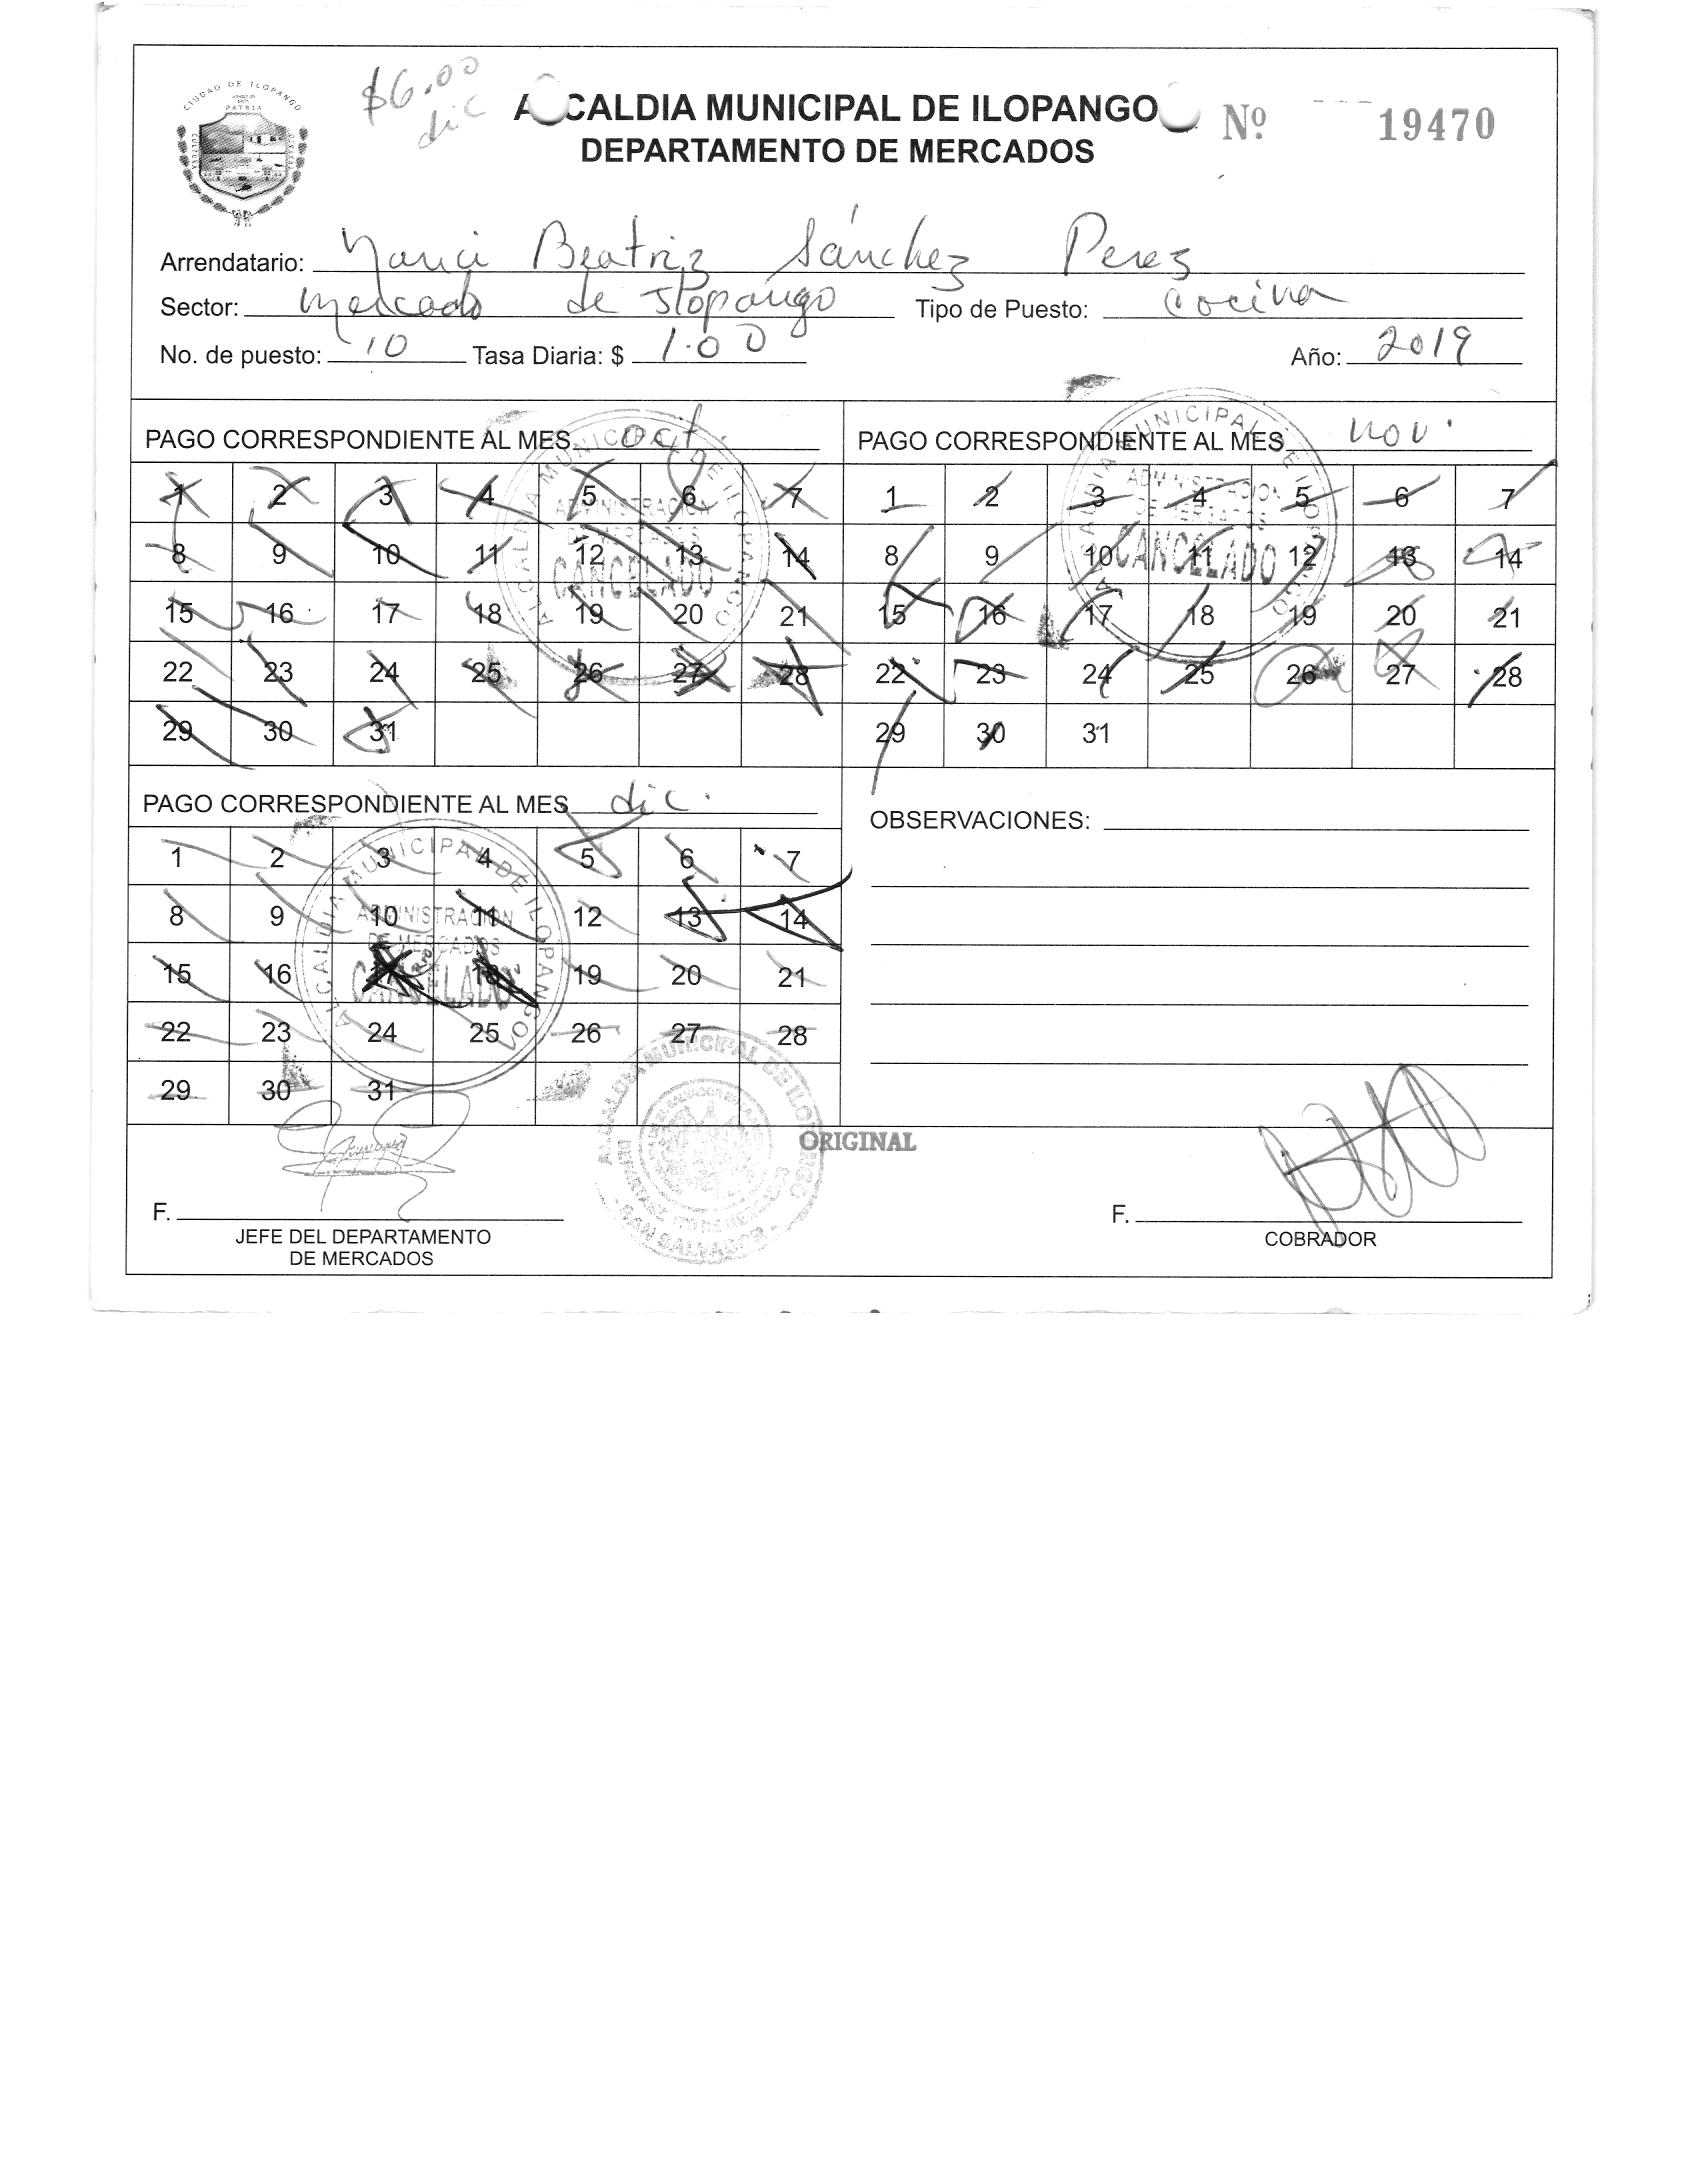 CIUDAD DE ILOPANGO
PATRIA
$6.00
dic
A CALDIA MUNICIPAL DE ILOPANGO
DEPARTAMENTO DE MERCADOS
Nº 19470
Arrendatario: Beatriz Sánchez Perez
Sector: Mercado de Ilopango Tipo de Puesto: Cocina
No. de puesto: 10 Tasa Diaria: $ 1.00 Año: 2019
PAGO CORRESPONDIENTE AL MES oct.
1 2 3 4 5 6 7
8 9 10 11 12 13 14
15 16 17 18 19 20 21
22 23 24 25 26 27 28
29 30 31
ALCALDIA MUNICIPAL DE ILOPANGO
ADMINISTRACION
DE MERCADOS
CANCELADO
PAGO CORRESPONDIENTE AL MES nov.
1 2 3 4 5 6 7
8 9 10 11 12 13 14
15 16 17 18 19 20 21
22 23 24 25 26 27 28
29 30 31
ALCALDIA MUNICIPAL DE ILOPANGO
ADMINISTRACION
DE MERCADOS
CANCELADO
PAGO CORRESPONDIENTE AL MES dic.
1 2 3 4 5 6 7
8 9 10 11 12 13 14
15 16 17 18 19 20 21
22 23 24 25 26 27 28
29 30 31
ALCALDIA MUNICIPAL DE ILOPANGO
ADMINISTRACION
DE MERCADOS
CANCELADO
OBSERVACIONES:
ALCALDIA MUNICIPAL DE ILOPANGO
SAN SALVADOR
ORIGINAL
F.
JEFE DEL DEPARTAMENTO
DE MERCADOS
F.
COBRADOR